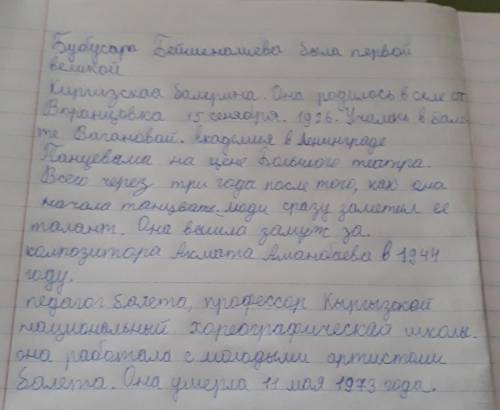 Бубусара Бейшеналиева была первой
великой
Киргизская балерина. Она родилось в селе
Воранцовка 15 сентября. 1926. Училась в бале-
те Вагановой. Академия в Ленинграде
Танцевала на цене Большого театра.
Всего через три года после того, как она
начала танцвать. люди сразу заметил ее
талант. Она вышла замуж за
композитора Ахмата Аманбаева в 1944
году.
педагог балета, профессор Кыргызской
национальный хореографической школы.
она работала с молодыми артистами
балета. Она умерла 11 мая 1973 года.